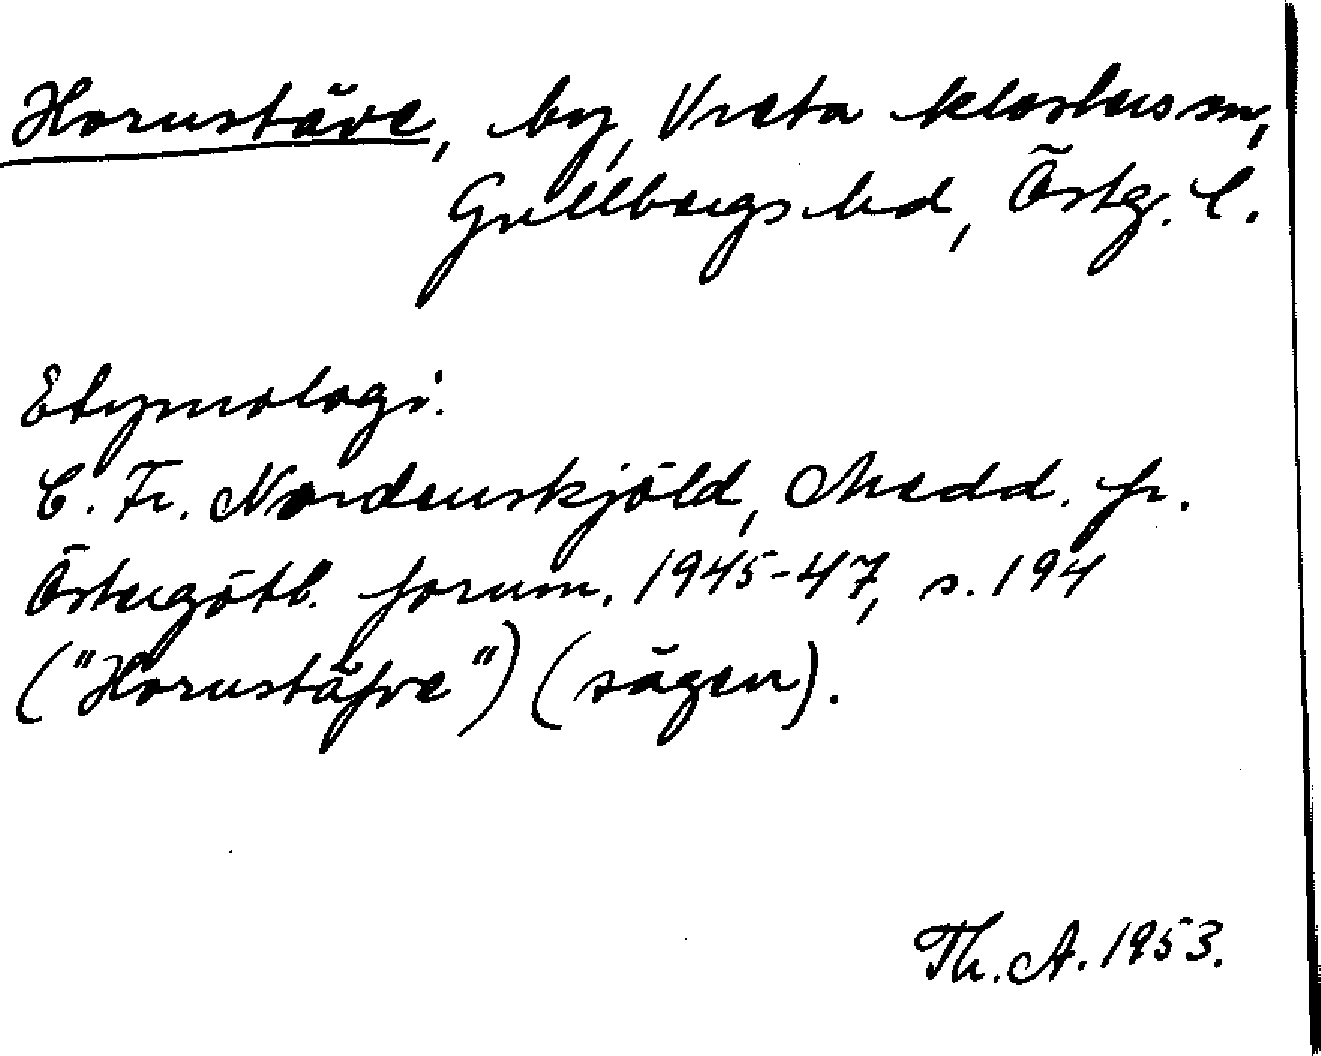 Hornstäve, by, Vreta klosters sn,
Gullbergs hd, Östg. l.
Etymologi.
C. Fr. Nordenskjöld, Medd. fr.
Östergötl. fornm. 1945-47, s. 194
("Hornstäfve") (sägen).
Th. A. 1953.